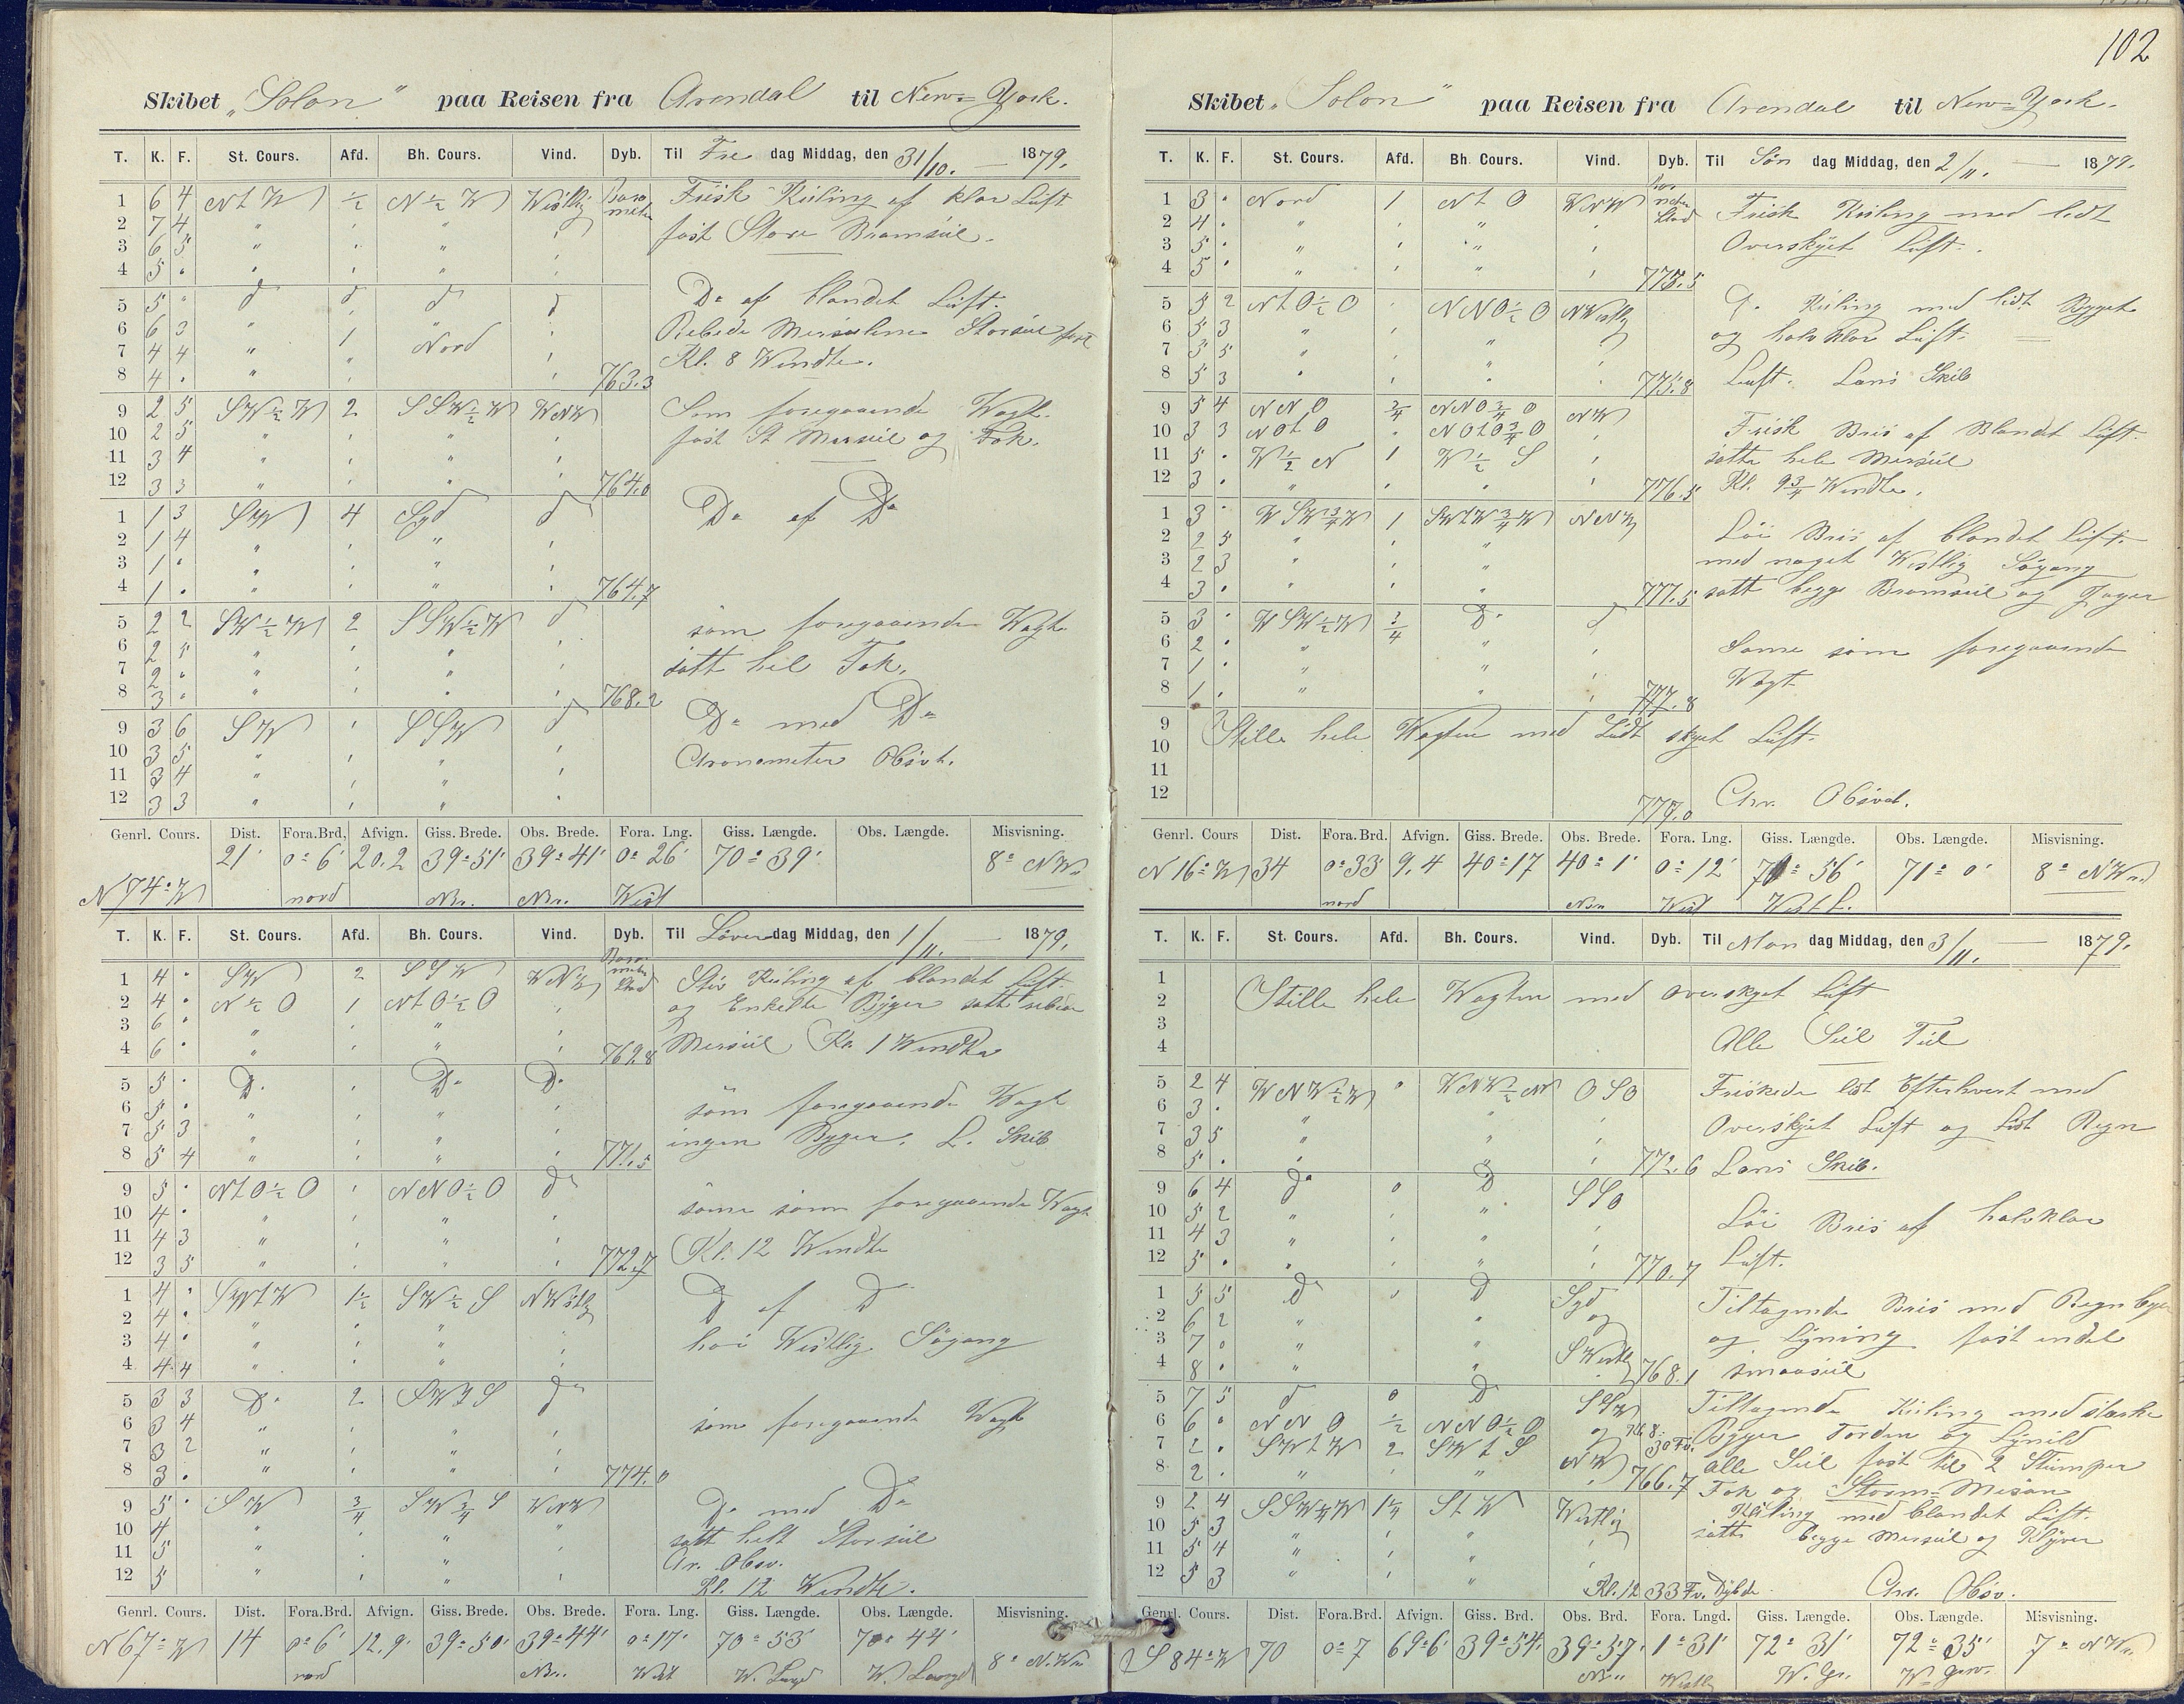 Skibet „Solon" paa Reisen fra Arendal til New=York.
T. K. F. St. Cours. Afd. Bh. Cours. Vind. Dyb. Til Fre dag Middag, den 31/10. — 1879.
1 6 4 N t W ½ N ½ W Westlig Baro meter Frisk Kuling af klar Luft
2 7 4 " " " " fast Store Bramseil.
3 6 5 " " " "
4 5 " " " " "
5 5 " d d d d Do af blandet Luft.
6 6 3 " 1 Nord " Rebede Merseilene Storseil fast
7 4 4 " " " " Kl. 8 Wendte.
8 4 . " " " " 763.3
9 2 5 SW ½ W 2 SSW ½ W WNW Som foregaaende Wagt.
10 2 5 " " " " fast St Merseil og Fok.
11 3 4 " " " "
12 3 3 " " " " 764.0
1 1 3 SW 4 Syd d Do af Do
2 1 4 " " " "
3 1 . " " " "
4 1 . " " " " 764.7
5 2 2 SW ½ W 2 SSW ½ W d som foregaaende Wagt
6 2 5 " " " " satt hel Fok.
7 2 . " " " "
8 3 . " " " " 768.2
9 3 6 SW " SSW d Do med Do
10 3 5 " " " " Cronometer Obsvt.
11 3 4 " " " "
12 3 3 " " " "
Genrl. Cours. Dist. Fora.Brd, Afvign. Giss. Brede. Obs. Brede. Fora. Lng. Giss. Længde. Obs. Længde. Misvisning.
N 74° W 21' 0° 6' 20.2 39° 51' 39° 41' 0° 26' 70° 39' 8° NW
nord Nr. Nr. West
T. K. F. St. Cours. Afd. Bh. Cours. Vind. Dyb. Til Löver dag Middag, den 1/11. — 1879.
1 4 . SW 2 SSW WNW Baro meter Stad Stiv Kuling af blandet Luft
2 4 . N ½ O 1 N t O ½ O " og Enkelte Byger satt
3 6 . " " " "
4 6 . " " " " 762.8 Merseil Kl. 1 Wendte
5 5 . Do " Do Do
6 5 . " " " " som foregaaende Wagt
7 5 3 " " " " ingen Byger. L. Skib
8 5 4 " " " " 771.5
9 5 . N t O ½ O " NNO ½ O do
10 4 . " " " " some som foregaaende Wagt
11 4 3 " " " " Kl. 12 Wendte
12 3 5 " " " " 772.7
1 4 . SW t W 1½ SW ½ S NWstlig D af D
2 4 . " " " "
3 4 . " " " " hoi Westlig Sögang
4 4 4 " " " "
5 3 3 Do 2 SW t S do
6 3 4 " " " " some foregaaende Wagt
7 3 2 " " " "
8 3 . " " " " 774.0
9 5 . SW ¾ SW ¾ S WNW Do med Do
10 4 " " " " satt helt Storseil
11 5 " " " Cr. Obsv.
12 5 " " " Kl. 12 Wendte.
Genrl. Cours. Dist. Fora.Brd. Afvign. Giss. Brede. Obs. Brede. Fora. Lng. Giss. Længde. Obs. Længde. Misvisning.
N 67° W 14 0° 6' 12.9' 39° 50' 39° 44' 0° 17' 70° 53' 70° 44' 8° N.W
nord Nr. West
102
Skibet „Solon" paa Reisen fra Arendal til New=York.
T. K. F. St. Cours. Afd. Bh. Cours. Vind. Dyb. Til Søn dag Middag, den 2/11. — 1879.
1 3 . Nord 1 N t O WNW Bar meter Stad Frisk Kuling med lidt
2 4 . " " " " Overskÿet Luft.
3 5 . " " " "
4 5 . " " " " 775.5
5 5 2 N t O ½ O " NNO ½ O NWestlig Kuling med lidt Byget
6 5 3 " " " " og halvklar Luft.
7 5 5 " " " "
8 5 3 " " " " 775.8 Luft. Lens Skib
9 5 4 NNO ¾ NNO ¾ O NW
10 3 3 NO t O " NO t O ¾ O " Frisk Bris af Blandt Luft.
11 5 . W ½ N 1 W ½ S " satte hele Merseil
12 3 . " " " 776.5 Kl. 9¾ Wendte.
1 3 . WSW ¾ W 1 SW t W ¾ W NNW Löi Bris af blandet Luft.
2 2 5 " " " med noget Westlig Sögang
3 2 3 " " "
4 3 . " " " 777.5 satt begge Bramseil og Jager
5 3 . WSW ½ W ¾ Do d
6 2 . " " " Some som foregaaende
7 1 . " " Wagt
8 1 . " " " 777.8
9 Stille hele Wagten med Lidt skyet Luft.
10
11
12 777.0 Chr. Obsvd.
Genrl. Cours Dist. Fora.Brd. Afvign. Giss. Brede. Obs. Brede. Fora. Lng. Giss. Længde. Obs. Længde. Misvisning.
N 16° W 34 0° 33' 9.4 40° 17 40° 1' 0° 12' 70° 56' 71° 0' 8° NW
nord Nr West West L.
T. K. F. St. Cours. Afd. Bh. Cours. Vind. Dyb. Til Man dag Middag, den 3/11. — 1879.
1
2 Stille hele Wagten med overskyet Luft
3 Alle Seil Til
4
5 2 4 WNW ½ W " WNW ½ W OSO Friskede lit Efterhvert med
6 3 . " " " Overskÿet Luft og Lidt Regn
7 3 5 " " "
8 5 . " " " 772.6 Lens Skib.
9 6 4 do o D SSO
10 5 2 " " " Löi Bris af halvklar
11 4 3 " " " "
12 5 . " " " " 770.7 Luft.
1 5 5 D " D Syd Tiltagende Bris med Regn byger
2 6 2 " " og og Lÿning fast endel
3 7 o " "
4 8 . " " SWestlig 768.1 smaaseil
5 7 5 d o D SSW Tiltagende Kuling med stærke
6 6 o NNO ½ NNO ½ O og Byger Torden og Lynild
7 2 . SW t W 2 SW t S NW 30 Fv. alle Seil fast til 2 Stumper
8 2 . " " " 766.7 Fok og Storm=Mesan
9 2 4 SSW ¼ W 1¼ S t W Westlig Kuling med blandet Luft.
10 5 3 " " " " satte begge Merseil og Klÿver
11 5 4 " " " "
12 5 3 " " Kl. 12 33 Fv. Dÿbde Chr. Obsv.
Genrl. Cours. Dist. Fora.Brd. Afvign. Giss. Brd. Obs. Brd. Fora. Lngd. Giss. Længde. Obs. Længde. Misvisning.
S 84° W 70 0° 7 69° 6' 39° 54' 39° 57' 1° 31' 72° 31' 72° 35' 7° NW
Westlig